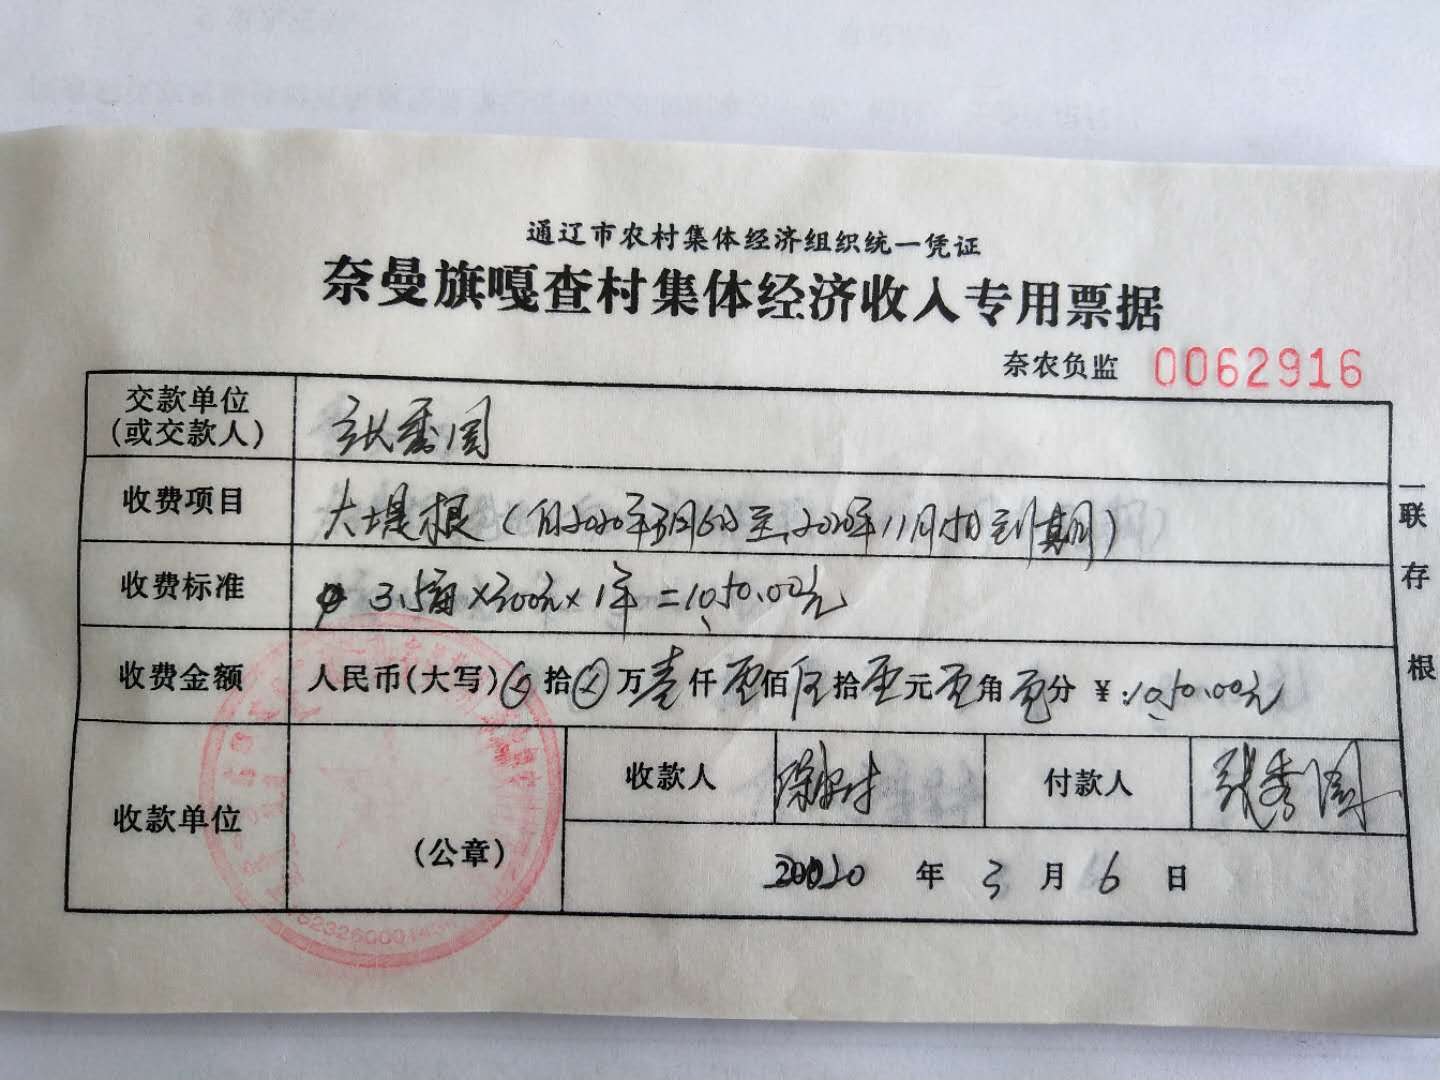 通辽市农村集体经济组织统一凭证
奈曼旗嘎查村集体经济收入专用票据
奈农负监 0062916
交款单位
(或交款人) 张秀阁
收费项目 大堤根(自2020年3月6日至2020年11月5日到期)
收费标准 3.5亩×300元×1年=1050.00元
收费金额 人民币(大写)⊗拾⊗万壹仟零佰伍拾零元零角零分 ¥:1050.00元
收款单位 (公章) 收款人 付款人 张秀阁
2020 年 3 月 6 日
一联存根